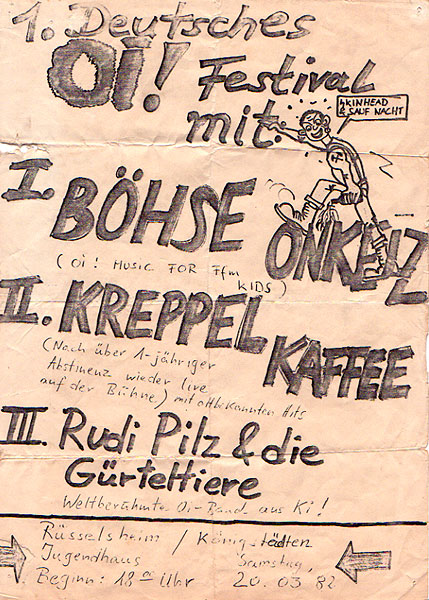 1. Deutsches
OI! Festival
mit:
SKINHEAD
& SAUF NACHT
I. BÖHSE
ONKELZ
(OI! MUSIC FOR Ffm
KIDS)
II. KREPPEL
KAFFEE
(Nach über 1-jähriger
Abstinenz wieder live
auf der Bühne) mit altbekannten Hits
III. Rudi Pilz & die
Gürteltiere
Weltberühmte Oi-Band aus Ki!
Rüsselsheim / Königstädten
Jugendhaus Samstag,
Beginn: 18 00 Uhr 20. 03 82